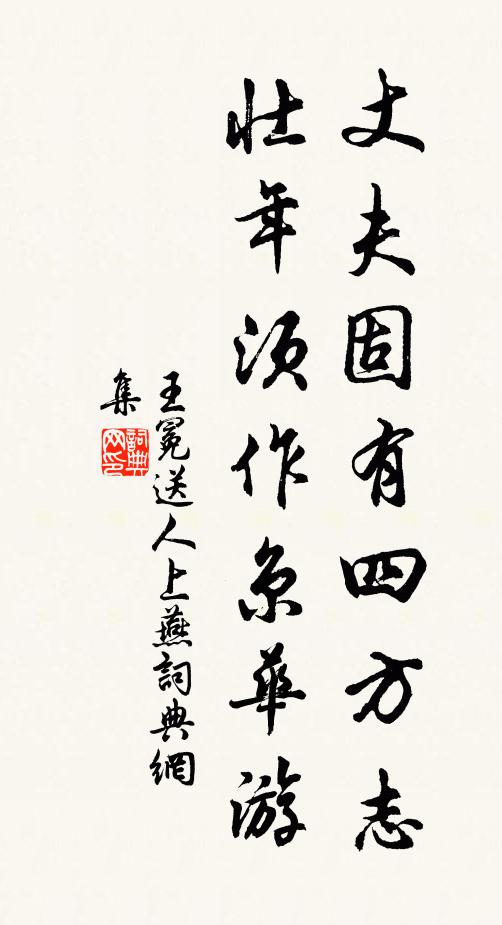 丈夫固有四方志
壮年须作京華游
王冕送人上燕詞典網
集
詞典
网印